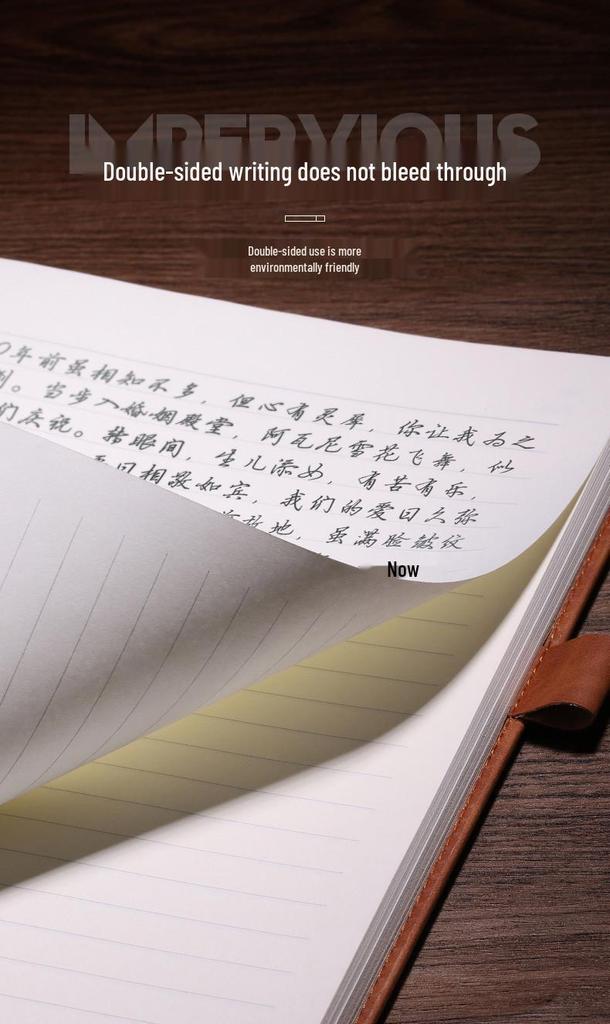 IMPERVIOUS
Double-sided writing does not bleed through
Double-sided use is more
environmentally friendly
0年前虽相知不多，但心有灵犀，你让我为之
到。当步入婚姻殿堂，阿瓦尼雪花飞舞，似
们庆祝。转眼间，生儿添女，有苦有乐，
相敬如宾，我们的爱日久弥
地，虽满脸皱纹
Now